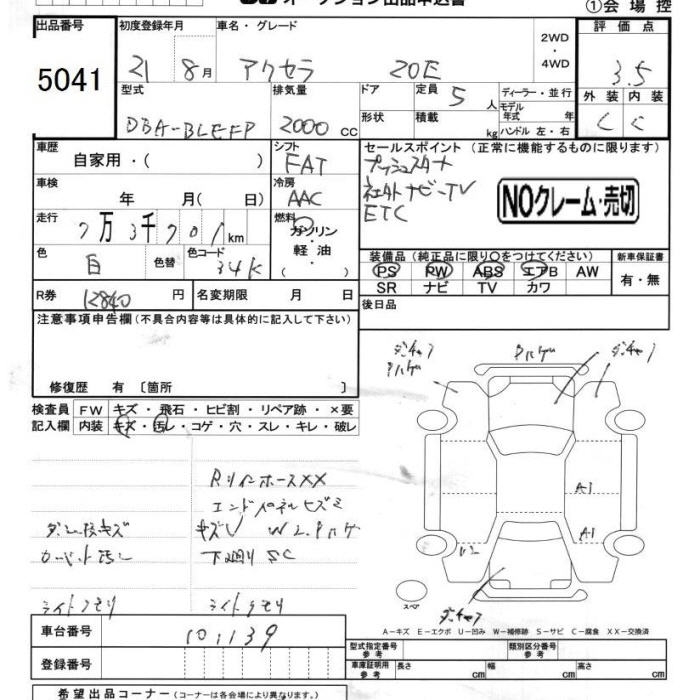 オークション出品申込書
①会場控
出品番号 5041
初度登録年月 21 8月
車名・グレード アクセラ 20E
2WD・4WD
評価点 3.5
外装 C 内装 C
型式 DBA-BLEFP
排気量 2000 CC
ドア
形状
定員 5人
積載 kg
ディーラー・並行
モデル年式 年
ハンドル 左・右
車歴 自家用・( )
シフト FAT
セールスポイント (正常に機能するものに限ります)
プッシュスタート
社外ナビ-TV
ETC
NOクレーム・売切
車検 年 月( 日)
冷房 AAC
走行 7万3千701km
燃料 ガソリン・軽油
色 白 色替
色コード 34K
装備品 (純正品に限り○をつけてください)
新車保証書
PS PW ABS エアB AW
SR ナビ TV カワ
有・無
R券 12840円
名変期限 月 日
後日品
注意事項申告欄 (不具合内容等は具体的に記入して下さい)
修復歴 有 [箇所 ]
検査員記入欄
FW キズ・飛石・ヒビ割・リペア跡・×要
内装 キズ・汚レ・コゲ・穴・スレ・キレ・破レ
RリィンホースXX
エンドパネルヒズミ
キズU W2、Pハゲ
下廻りSC
カーペット汚レ
ライトクモリ
ライトクモリ
Pハゲ
Pハゲ
A1
A1
スペア
A-キズ E-エクボ U-凹み W-補修跡 S-サビ C-腐食 XX-交換済
車台番号 101139
登録番号
型式指定番号 参考
類別区分番号 参考
車庫証明用 参考
長さ cm 幅 cm 高さ cm
希望出品コーナー (コーナーは各会場により異なります。)